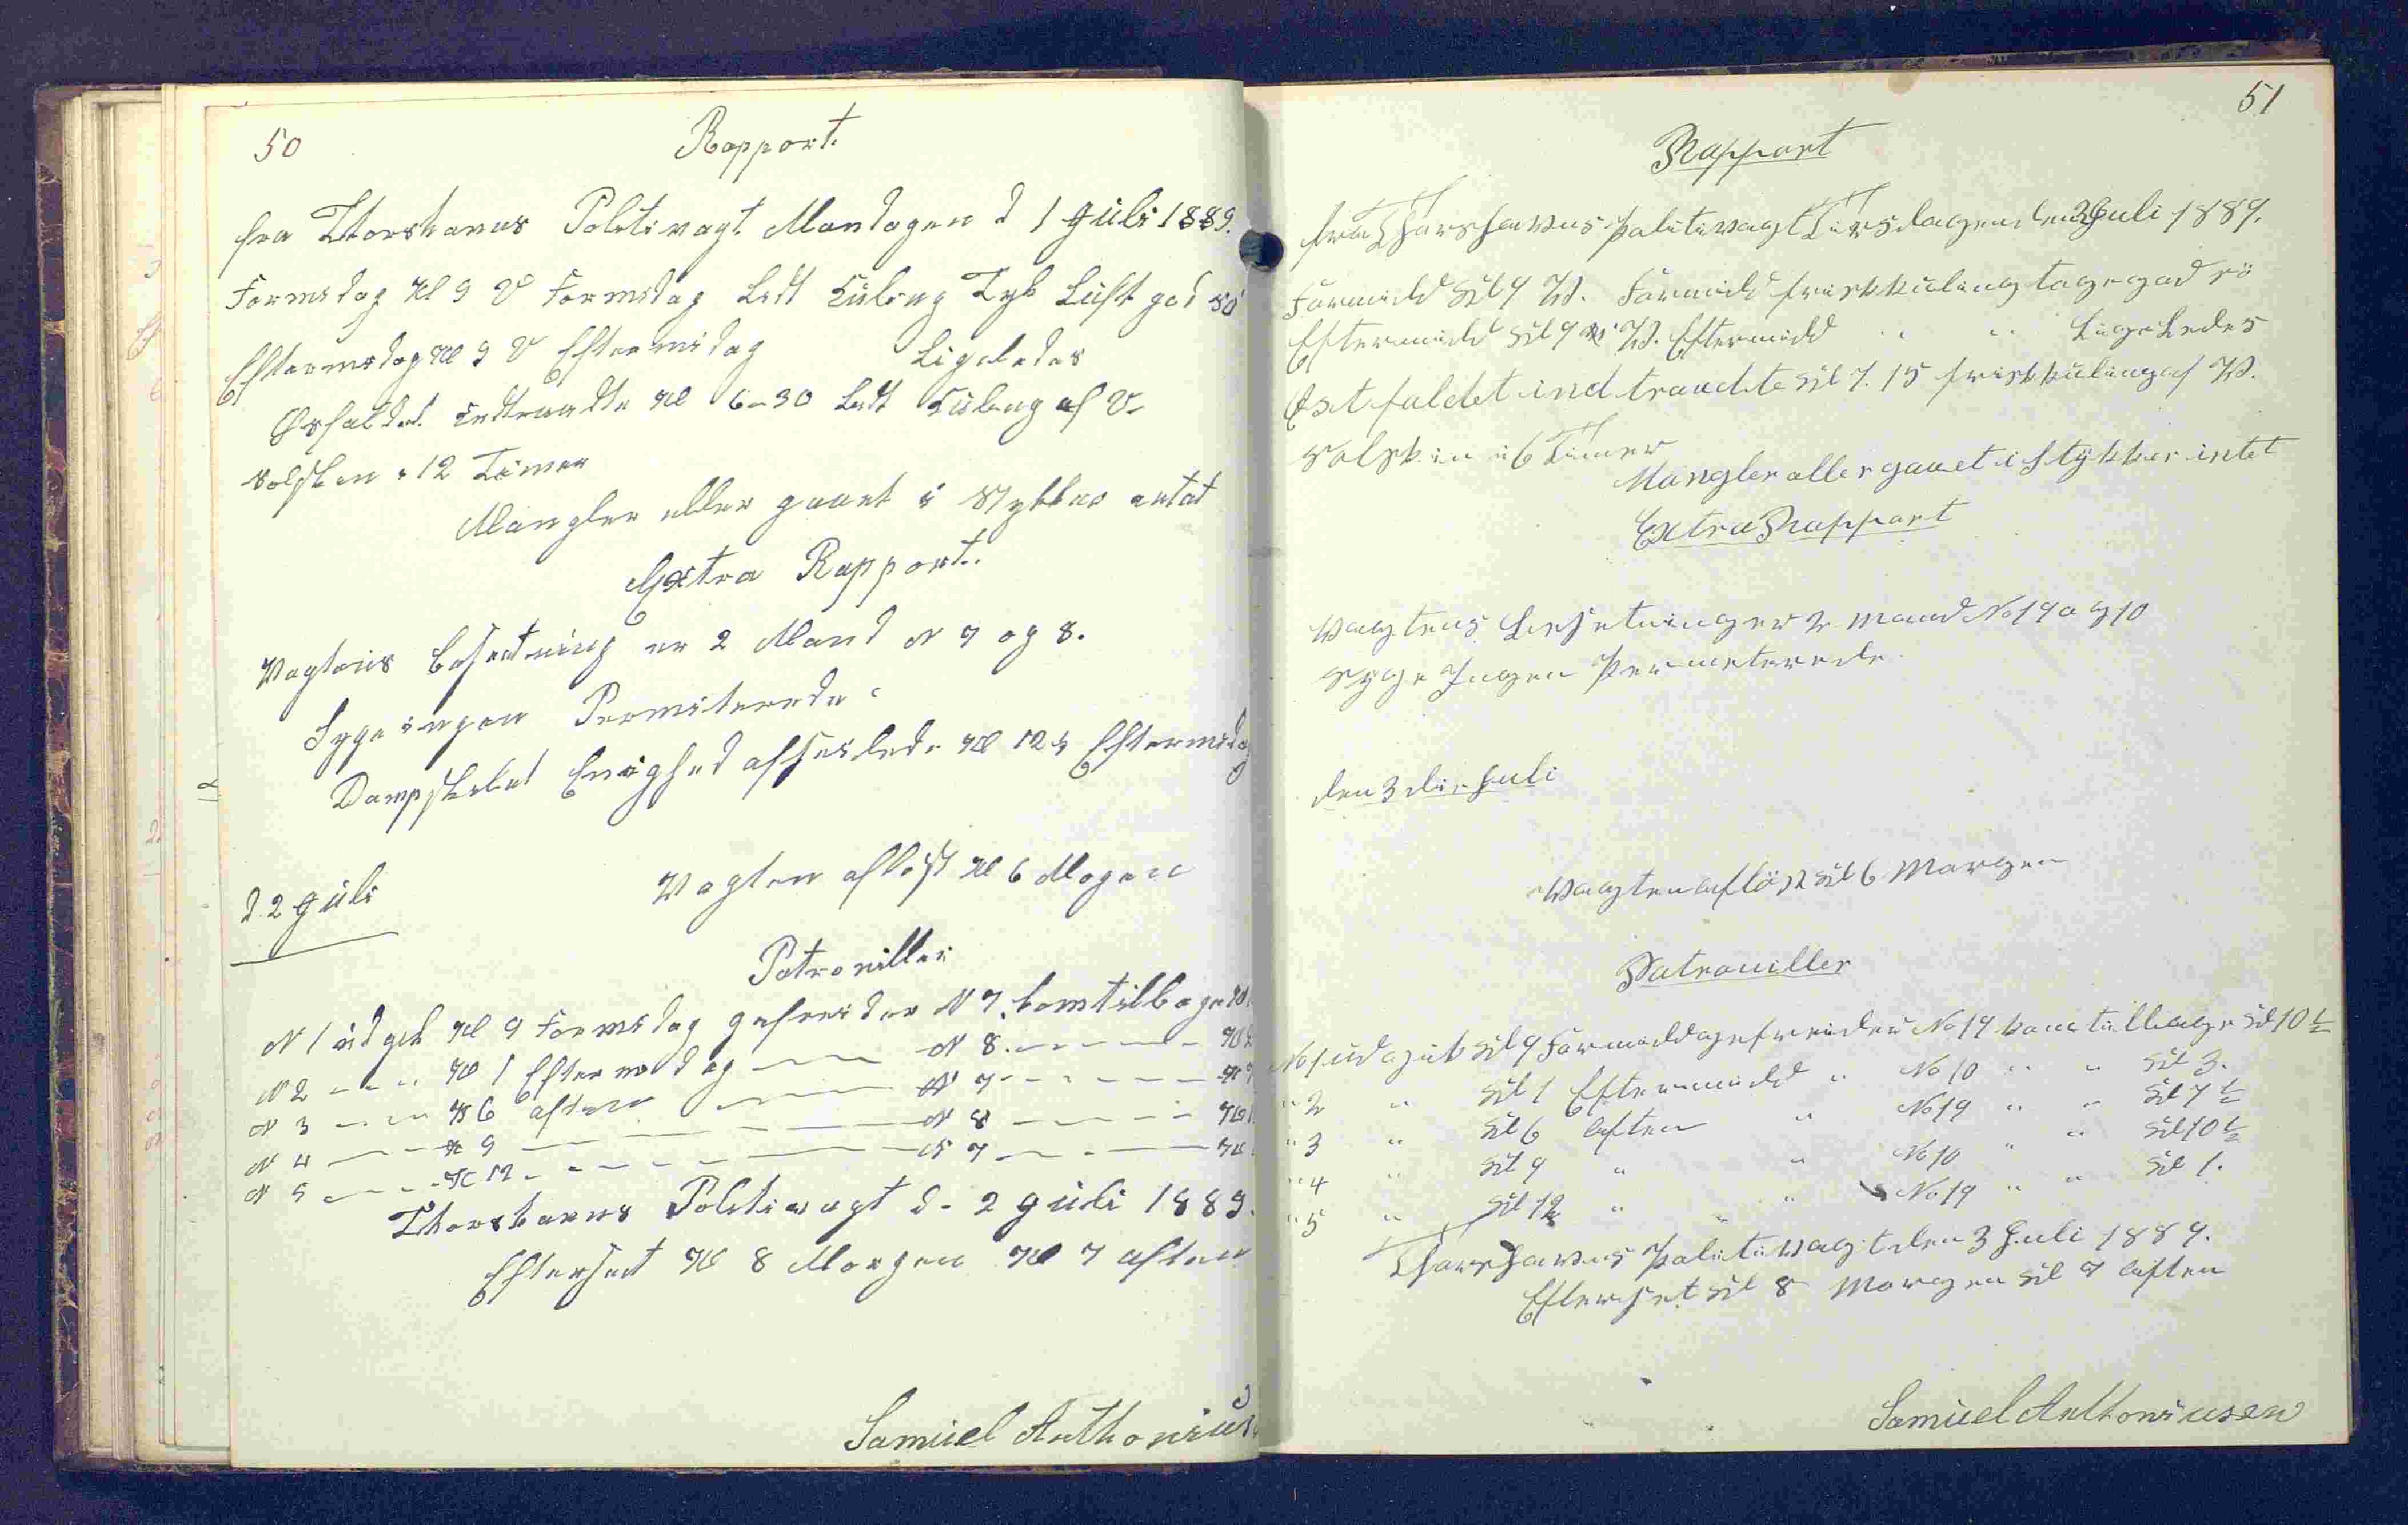 50
Rapport.
fra Thorshavns Politivagt. Mandagen d 1 Juli 1889.
Formidag Kl 9 V Formidag Lidt Kuling Tyk Luft god sö
Eftermidag Kl 9 V Eftermidag Ligeledes
Østfaldet indtraadte Kl 6-30 Lidt Kuling af V-
Solsken i 12 Timer
Mangler eller gaaet i Stykker intet
Extra Rapport.
Vagtens besetning er 2 Mand N 7 og 8.
Syge ingen Permiterede
Dampskibet Enighed afseilede Kl 12 Eftermidag
d. 2 Juli
Vagten aflöst Kl 6 Mogen
Patrouiller
N 1 udgik Kl 9 Formidag gefreider N 7. kom tilbage Kl
N 2 - - - Kl 1 Eftermidag - - N 8. - - - - Kl
N 3 - - - Kl 6 aften - - N 7 - - - -
N 4 - - - Kl 9 - - - N 8 - - - - Kl
N 5 - - - Kl 12 - - - - N 7 - - - Kl
Thorshavns Politivagt d - 2 Juli 1889.
Efterset Kl 8 Morgen Kl 7 aften
Samuel Anthonius
51
Rapport
fra Thorshavns Politivagt Tirsdagen den 2 Juli 1889.
Formidd Kl 9 W. Formidd frisk kuling tage god sö
Eftermidd Kl 9 W. Eftermidd " " Lige Ledes
Østfaldet indtraadte Kl 7.15 frisk kuling af W.
Solskin i 6 Timer
Mangler eller gaaet i Stykker intet
Extra Rapport
Wagtens Besetning er 2 mand No 19 og 10
Syge Ingen Permeterede.
den 3die Juli
Wagten aflöst Kl 6 Morgen
Patrouiller
No 1 udgik Kl 9 Formiddag gefreider No 19 kom tilbage Kl 10 ½
" 2 " Kl 1 Eftermidd " No 10 " " Kl 3.
" 3 " Kl 6 Aften " No 19 " " Kl 7 ½
" 4 " Kl 9 " " No 10 " " Kl 10 ½
" 5 " Kl 12 " " " No 19 " " Kl 1.
Thorshavns Politivagt den 3 Juli 1889.
Efterset Kl 8 Morgen Kl 7 Aften
Samuel Anthoniusen